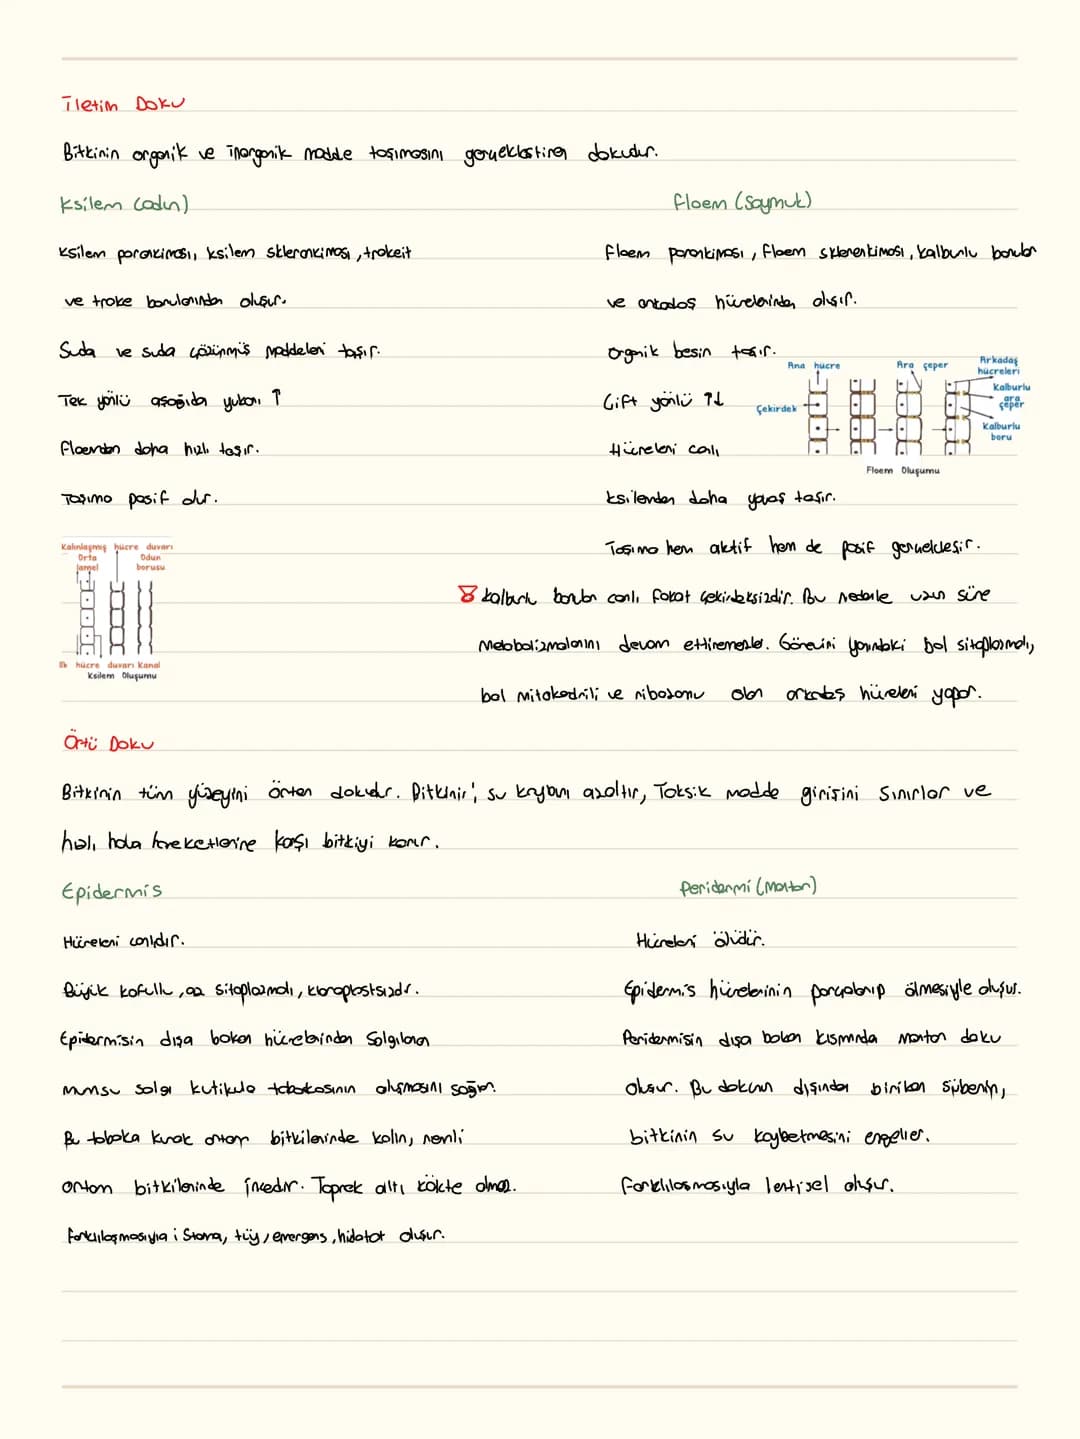 İletim Doku
Bitkinin organik ve inorganik madde taşımasını gerçekleştiren dokudur.
Ksilem (odun)
Ksilem parankiması, ksilem sklerankiması, trakeit
ve trake borularından oluşur.
Suda ve suda çözünmüş maddeleri taşır.
Tek yönlü aşağıda yukarı ↑
Floemden daha hızlı taşır.
Taşıma pasif dir.
Kalınlaşmış hücre duvarı
Orta lamel
Odun borusu
İlk hücre duvarı Kanal
Ksilem Oluşumu
Floem (Soymuk)
Floem parankiması, Floem sklerenkiması, kalburlu borular
ve arkadaş hücrelerinden oluşır.
Organik besin taşır.
Çift yönlü ↑↓
Hücreleri canlı
Ksilemden daha yavaş taşır.
Taşıma hem aktif hem de pasif gerçekleşir.
Ana hücre
Ara çeper
Arkadaş hücreleri
Çekirdek
Kalburlu ara çeper
Kalburlu boru
Floem Oluşumu
kalburlu borular canlı fakat çekirdeksizdir. Bu nedenle uzun süre
metabolizmalarını devam ettiremezler. Görevini yanındaki bol sitoplazmalı,
bol mitokodrili ve ribozomu olan arkadaş hücreleri yapar.
Örtü Doku
Bitkinin tüm yüzeyini örten dokudur. Bitkinin su kaybını azaltır, Toksik madde girişini sınırlar ve
hızlı hava hareketlerine karşı bitkiyi korur.
Epidermis
Hücreleri canlıdır.
Büyük kofullu, az sitoplazmalı, kloroplastsızdır.
Epidermisin dışa bakan hücrelerinden Salgılanan
mumsu salgı kutikula tabakasının oluşmasını sağlar.
Bu tabaka kurak ortam bitkilerinde kalın, nemli
ortam bitkilerinde incedir. Toprak altı kökte olmaz.
farklılaşmasıyla; Stoma, tüy, emergens, hidatot oluşur.
Peridermi (Mantar)
Hücreleri ölüdür.
Epidermis hücrelerinin parçalanıp ölmesiyle oluşur.
Peridermisin dışa bakan kısmında mantar doku
oluşur. Bu dokunun dışından biriken süberin,
bitkinin su kaybetmesini engeller.
Farklılaşmasıyla lentisel oluşur.